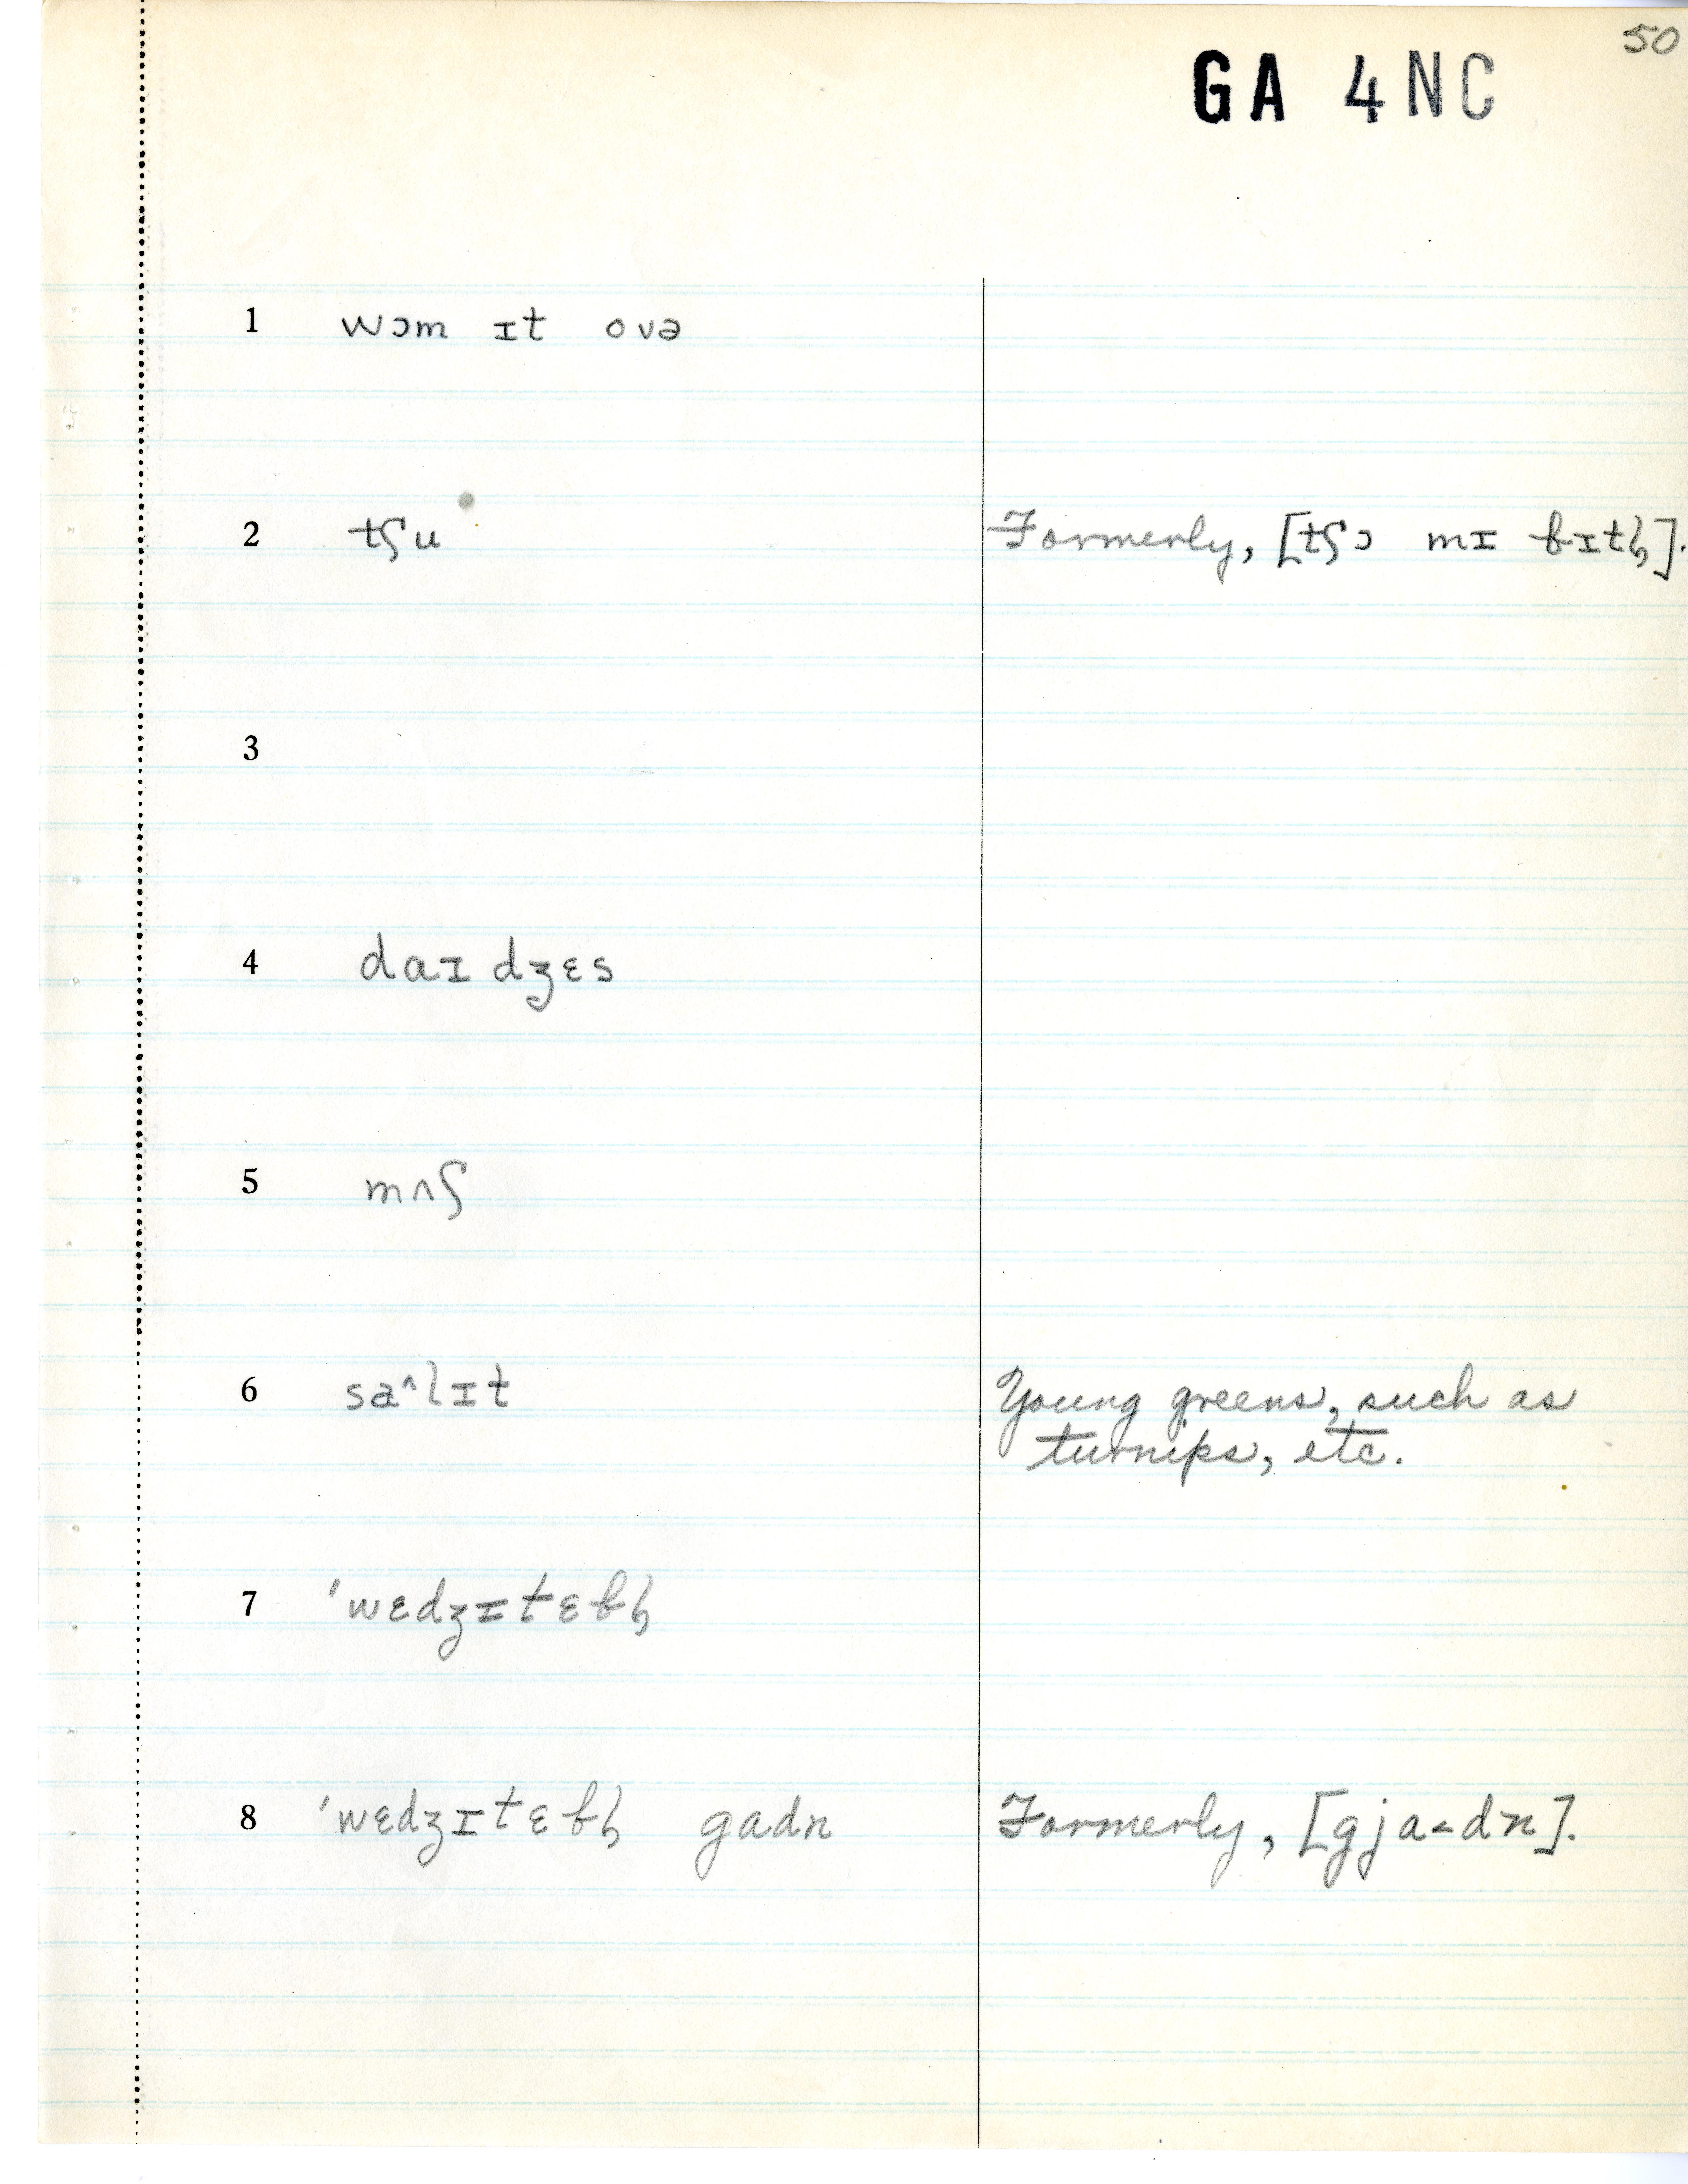 50
GA 4NC
1 wɔm ɪt ovə
2 tʃu Formerly, [tʃɔ mɪ bɪtḷ].
3
4 daɪ dʒɛs
5 mʌʃ
6 sa^lɪt Young greens, such as
turnips, etc.
7 'wɛdʒɪtɛbḷ
8 'wɛdʒɪtɛbḷ gadn Formerly, [gja<dn].